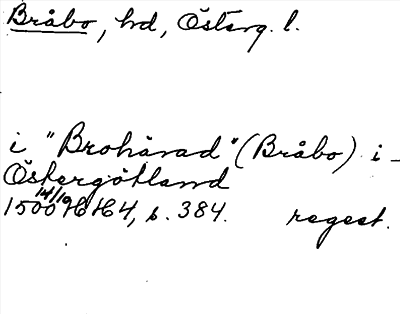 Bråbo, hd, Österg. l.
i "Brohärad" (Bråbo) i
Östergötland
14/10
1500 HH 4, s. 384. regest.